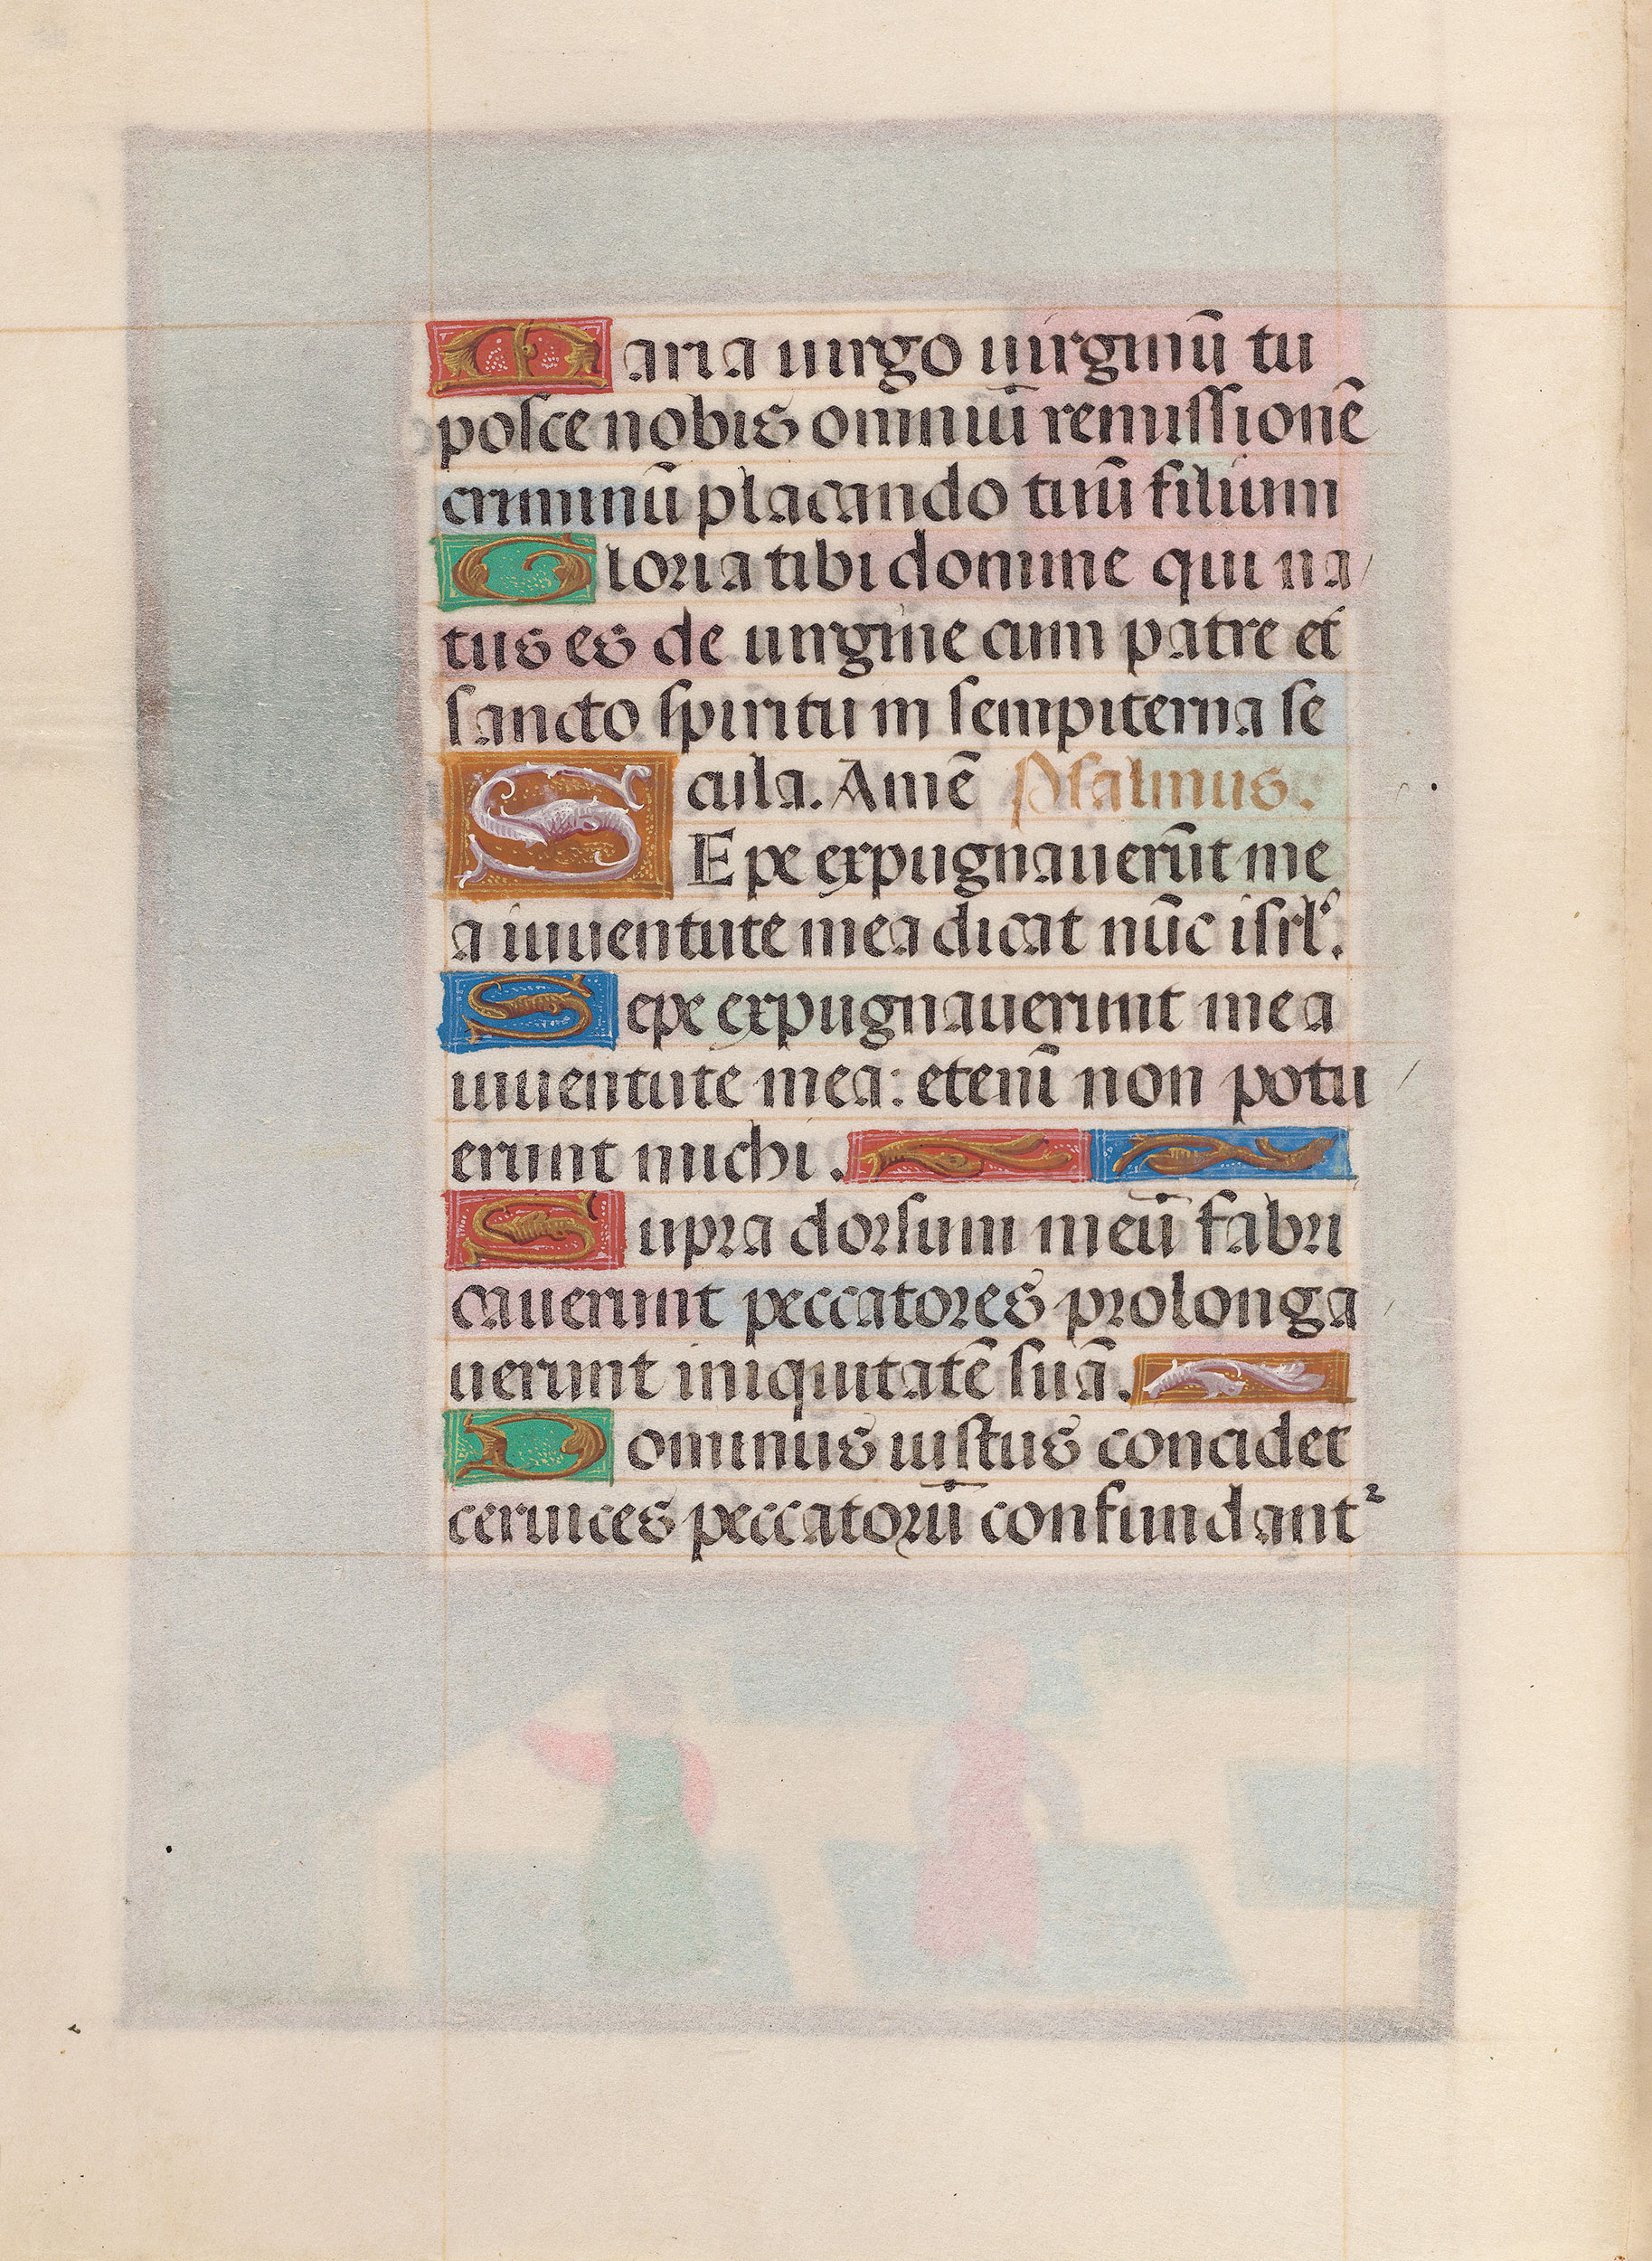 Maria uirgo uirginū tu
posce nobis omniū remissionē
criminū placando tuū filium
Gloria tibi domine qui na
tus es de uirgine cum patre et
sancto spiritu in sempiterna se
cula. Amē Psalmus.
SEpe expugnauerūt me
a iuuentute mea dicat nūc isrl̓.
Sepe expugnauerunt me a
iuuentute mea: etenī non potu
erunt michi.
Supra dorsum meū fabri
cauerunt peccatores prolonga
uerunt iniquitatē suā.
Dominus iustus concidet
ceruices peccatorū confundantᷣ